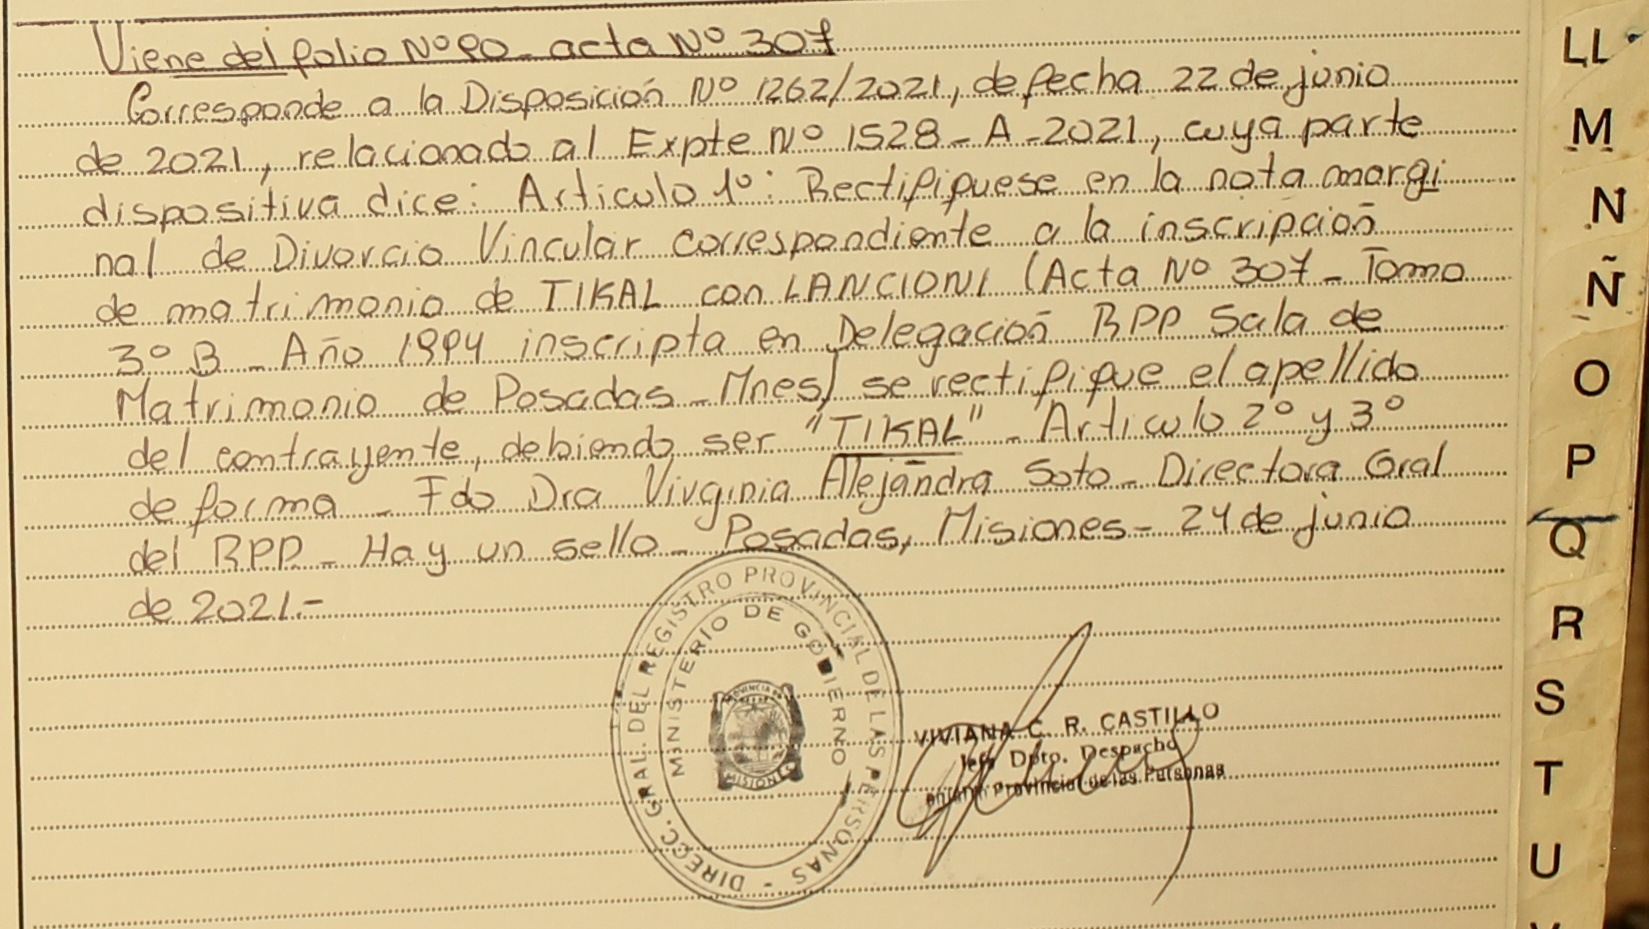 Viene del folio Nº 90 - acta Nº 307
Corresponde a la Disposición Nº 1262/2021, de fecha 22 de junio
de 2021, relacionado al Expte Nº 1528 - A - 2021, cuya parte
dispositiva dice: Articulo 1º: Rectifiquese en la nota margi
nal de Divorcio Vincular correspondiente a la inscripción
de matrimonio de TIKAL con LANCIONI (Acta Nº 307 - Tomo
3º B - Año 1994 inscripta en Delegación RPP Sala de
Matrimonio de Posadas - Mnes) se rectifique el apellido
del contrayente, debiendo ser "TIKAL" - Articulo 2º y 3º
de forma - Fdo Dra Virginia Alejandra Soto - Directora Gral
del RPP - Hay un sello - Posadas, Misiones - 24 de junio
de 2021.-
DIRECC. GRAL. DEL REGISTRO PROVINCIAL DE LAS PERSONAS -
MINISTERIO DE GOBIERNO
PROVINCIA DE
MISIONES
VIVIANA C. R. CASTILLO
Jefe Dpto. Despacho
Provincial de las Personas
LL
M
N
Ñ
O
P
Q
R
S
T
U
V